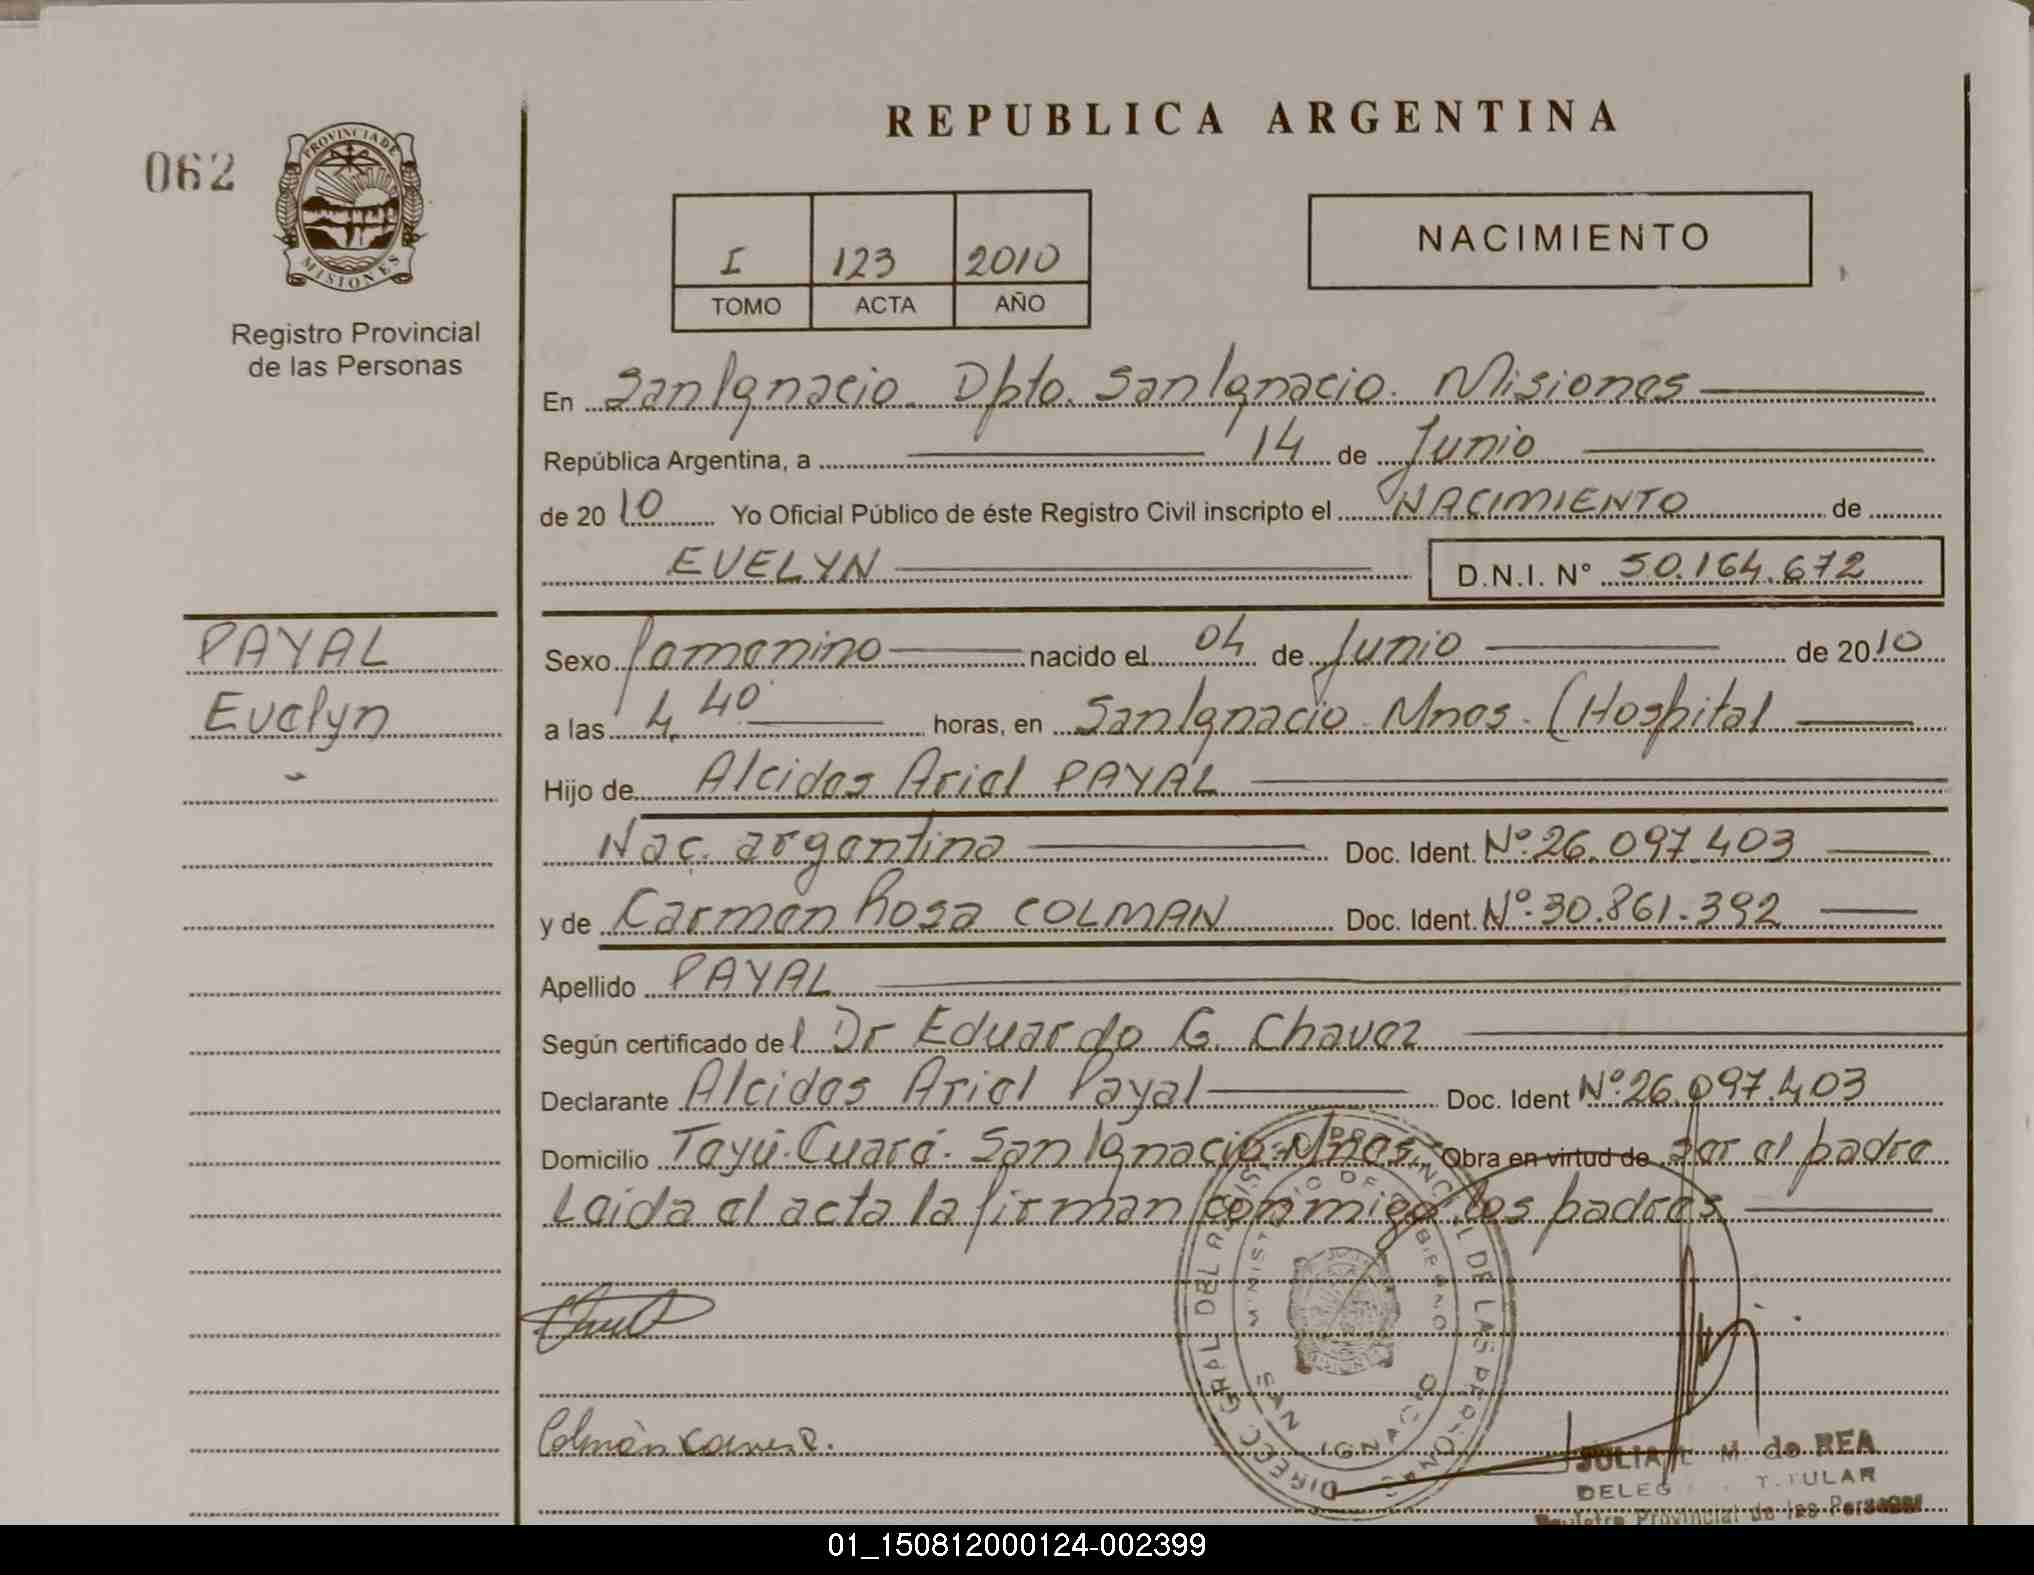 REPUBLICA ARGENTINA
062
PROVINCIA DE
MISIONES
Registro Provincial
de las Personas
I 123 2010
TOMO ACTA AÑO
NACIMIENTO
En San Ignacio. Dpto. San Ignacio. Misiones
República Argentina, a 14 de Junio
de 2010 Yo Oficial Público de éste Registro Civil inscripto el NACIMIENTO de
EVELYN D.N.I. N° 50.164.672
PAYAL
Evelyn
Sexo femenino nacido el 04 de Junio de 2010
a las 4,40 horas, en San Ignacio. Mnes. (Hospital
Hijo de Alcides Ariel PAYAL
Nac. argentina Doc. Ident. N°.26.097.403
y de Carmen Rosa COLMAN Doc. Ident. N°.30.861.392
Apellido PAYAL
Según certificado del Dr Eduardo G. Chavez
Declarante Alcides Ariel Payal Doc. Ident N°.26.097.403
Domicilio Teyú-Cuaré. San Ignacio-Mnes. Obra en virtud de ser el padre
Leida el acta la firman conmigo los padres
DIREC. GRAL DEL REGISTRO PROVINCIAL DE LAS PERSONAS
MINISTERIO DE GOBIERNO
SAN IGNACIO
Colmán
JULIA L. M. de REA
DELEG TITULAR
Registro Provincial de las Personas
01_150812000124-002399